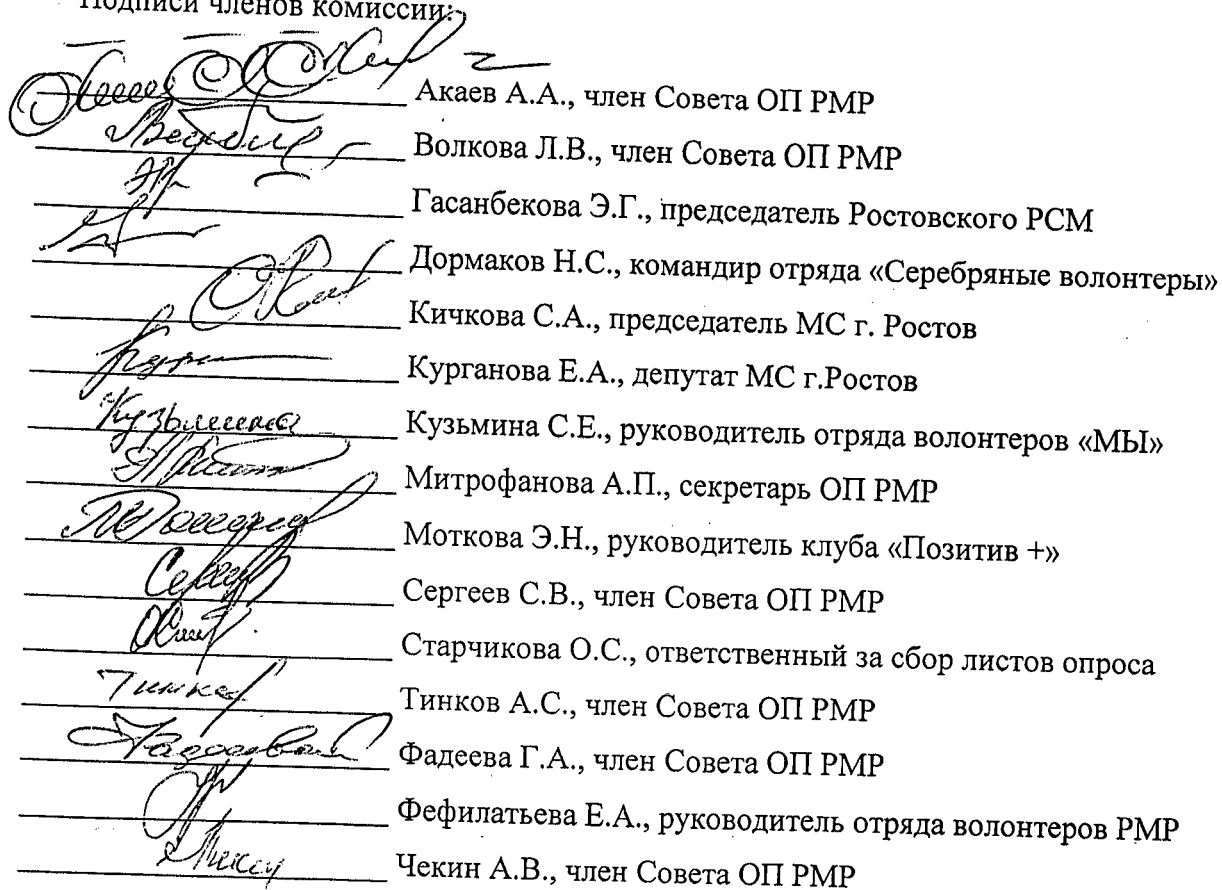 Подписи членов комиссии:
Акаев А.А., член Совета ОП РМР
Волкова Л.В., член Совета ОП РМР
Гасанбекова Э.Г., председатель Ростовского РСМ
Дормаков Н.С., командир отряда «Серебряные волонтеры»
Кичкова С.А., председатель МС г. Ростов
Курганова Е.А., депутат МС г.Ростов
Кузьмина Кузьмина С.Е., руководитель отряда волонтеров «МЫ»
Митрофанова А.П., секретарь ОП РМР
Моткова Э.Н., руководитель клуба «Позитив +»
Сергеев С.В., член Совета ОП РМР
Старчикова О.С., ответственный за сбор листов опроса
Тинков А.С., член Совета ОП РМР
Фадеева Г.А., член Совета ОП РМР
Фефилатьева Е.А., руководитель отряда волонтеров РМР
Чекин А.В., член Совета ОП РМР